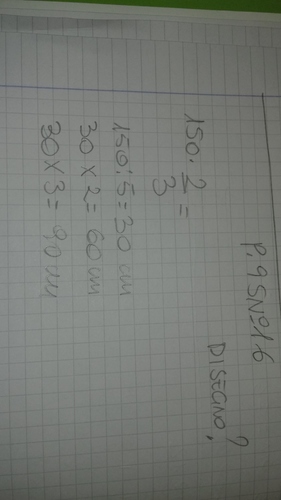 P. 95 N° 16
DISEGNO?
150 · 2/3 =
150 : 5 = 30 cm
30 × 2 = 60 cm
30 × 3 = 90 cm